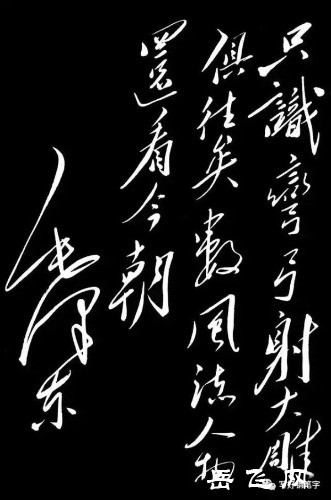 只識彎弓射大雕
俱往矣數風流人物
還看今朝
毛澤東
岳飞网